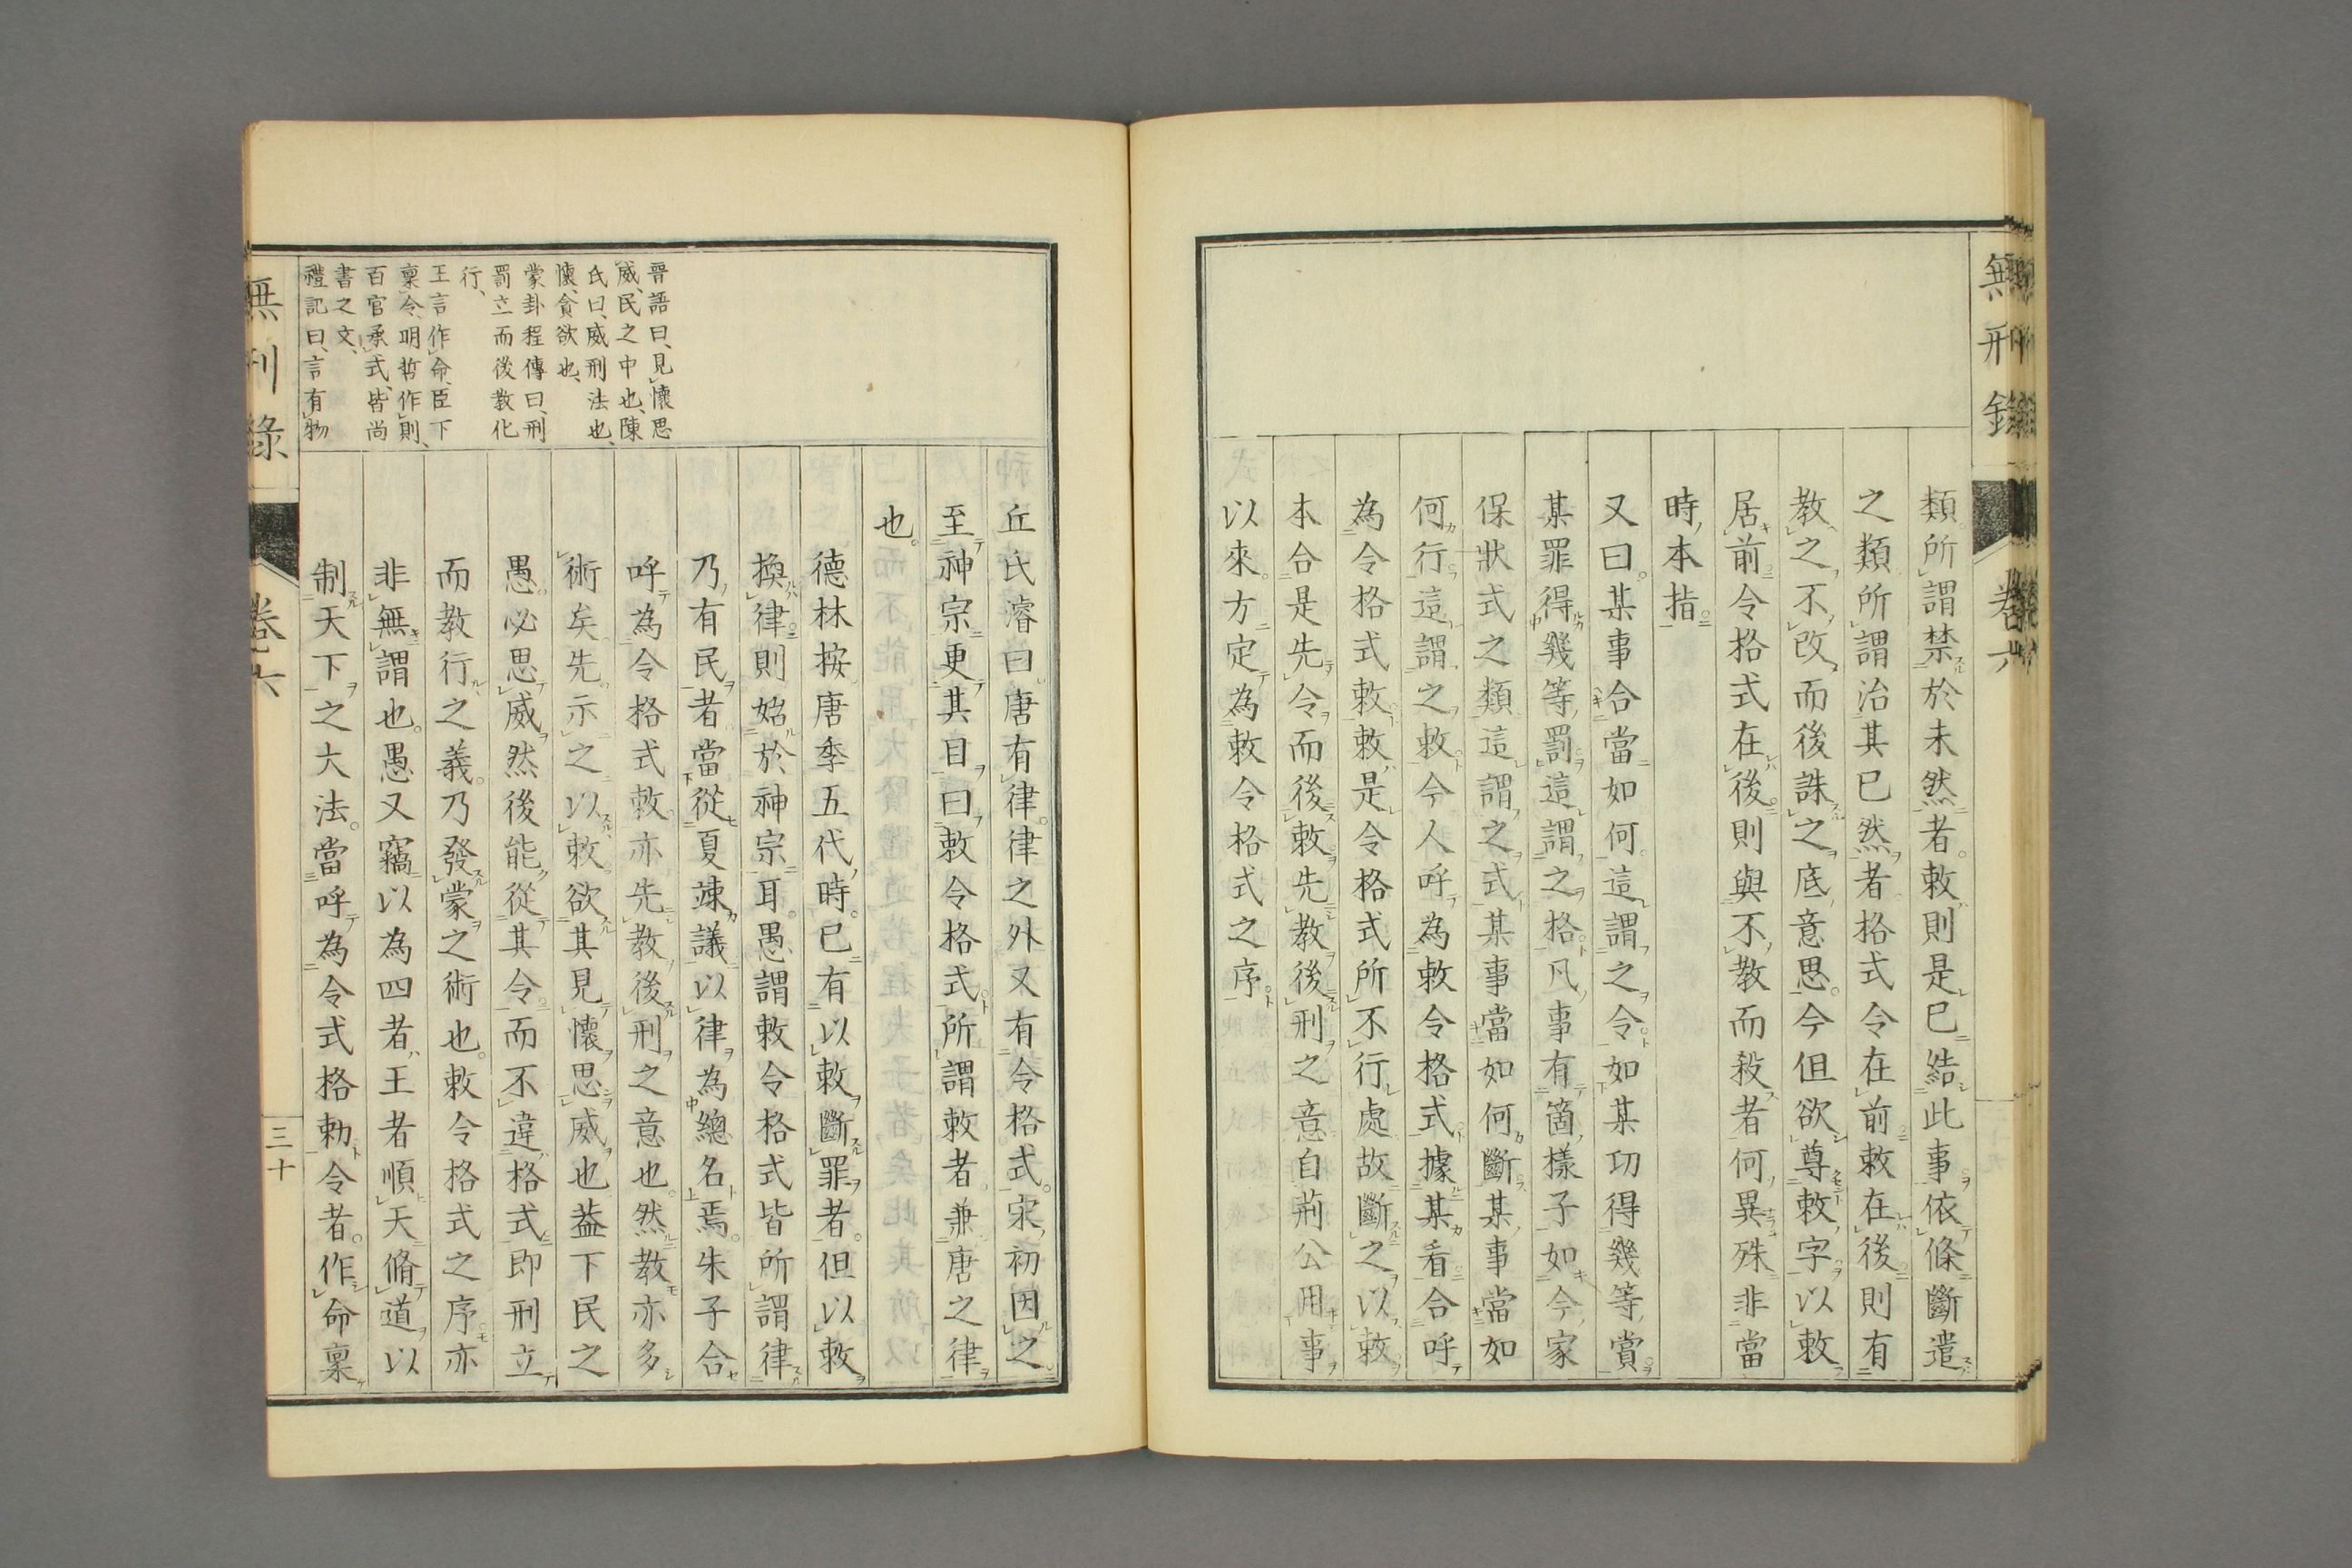 無刑錄
卷六
類所謂禁於未然者敕則是已結此事依條斷遣
之類所謂治其已然者格式令在前敕在後則有
教之不改而後誅之底意思今但欲尊敕字以敕
居前令格式在後則與不教而殺者何異殊非當
時本指
又曰某事合當如何這謂之令如某功得幾等賞
某罪得幾等罰這謂之格凡事有箇樣子如今家
保狀式之類這謂之式某事當如何斷某事當如
何行這謂之敕今人呼為敕令格式據某看合呼
為令格式敕敕是令格式所不行處故斷之以敕
本合是先令而後敕先教後刑之意自荊公用事
以來方定為敕令格式之序
丘氏濬曰唐有律律之外又有令格式宋初因之
至神宗更其目曰敕令格式所謂敕者兼唐之律
也
德林按唐季五代時已有以敕斷罪者但以敕
換律則始於神宗耳愚謂敕令格式皆所謂律
乃有民者當從夏竦議以律為總名焉朱子合
呼為令格式敕亦先教後刑之意也然教亦多
術矣先示之以敕欲其見懷思威也蓋下民之
愚必思威然後能從其令而不違格式即刑立
而教行之義乃發蒙之術也敕令格式之序亦
非無謂也愚又竊以為四者王者順天脩道以
制天下之大法當呼為令式格勅令者作命稟
晉語曰、見懷思
威、民之中也、陳
氏曰、威刑法也、
懷、貪欲也、
蒙卦程傳曰、刑
罰立而後教化
行、
王言作命、臣下
稟令、明哲作則、
百官承式、皆尚
書之文、
禮記曰、言有物
無刑錄
卷六
三十